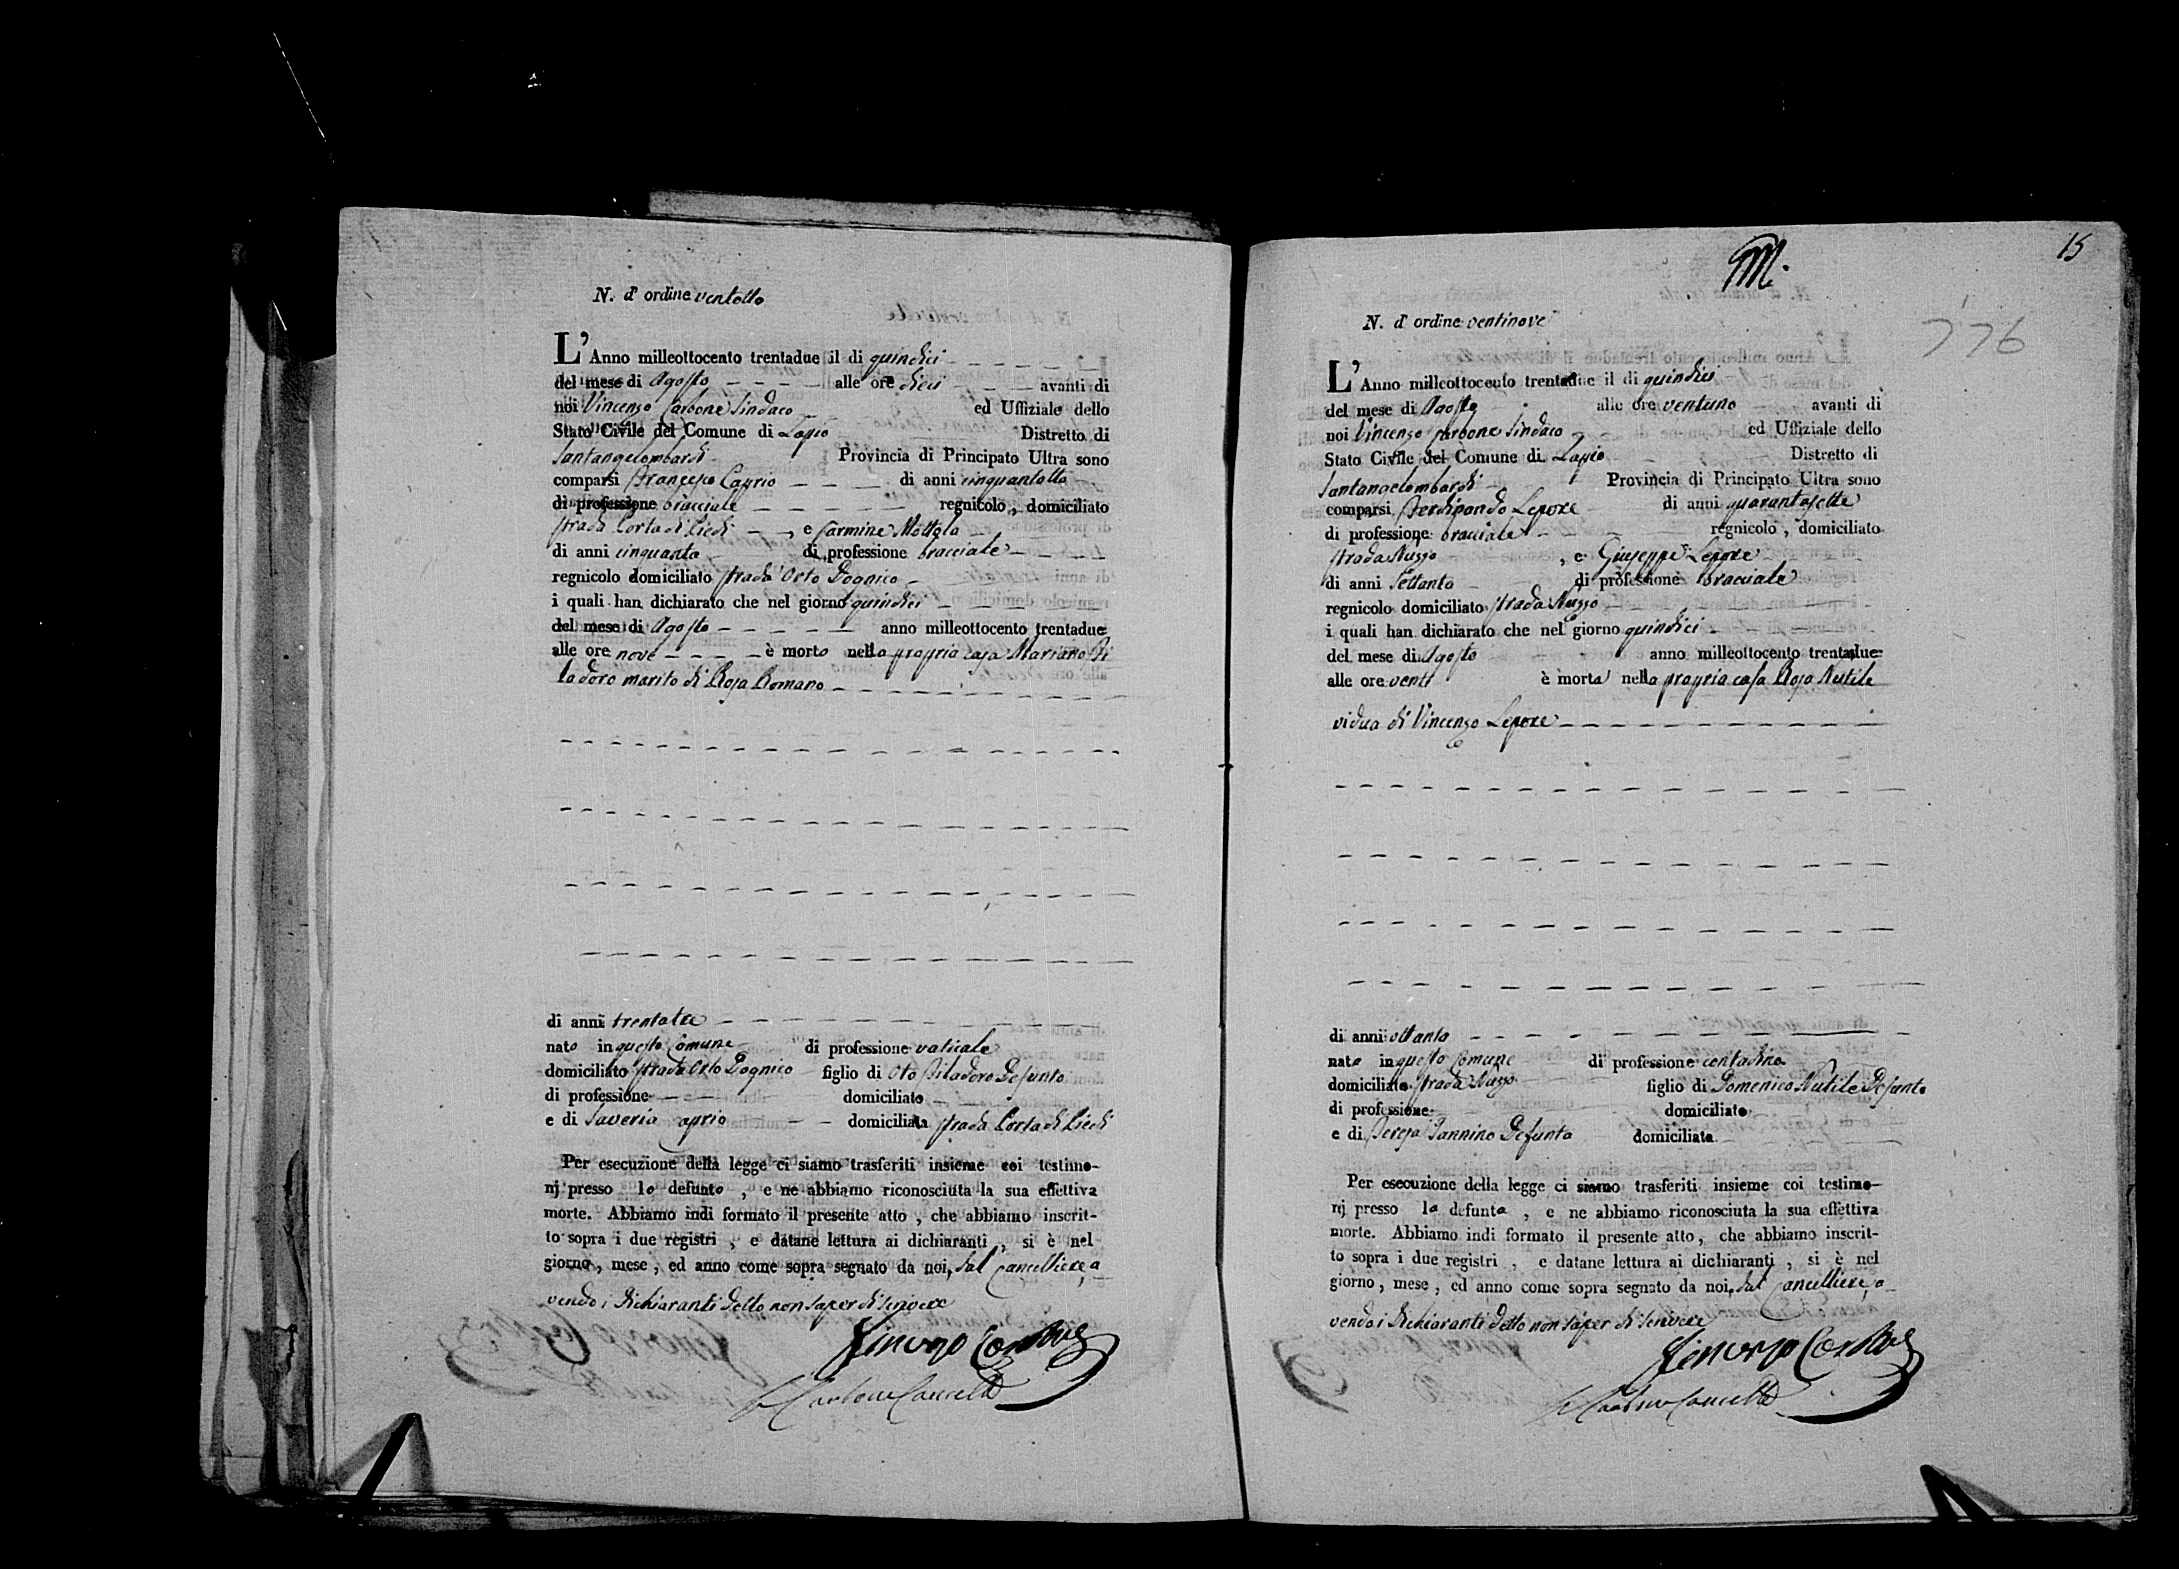 N. d' ordine ventotto
L'Anno milleottocento trentadue il di quindici
del mese di Agosto alle ore dieci avanti di
noi Vincenzo Carbone Sindaco ed Uffiziale dello
Stato Civile del Comune di Lapio Distretto di
Santangelombardi Provincia di Principato Ultra sono
comparsi Francesco Caprio di anni cinquantotto
di professione bracciale regnicolo, domiciliato
strada Porta di Piedi, e Carmine Mottola
di anni cinquanta di professione bracciale
regnicolo domiciliato strada Orto Dognico
i quali han dichiarato che nel giorno quindici
del mese di Agosto anno milleottocento trentadue
alle ore nove è morto nella propria casa Mariano Pi
ladoro marito di Rosa Romano
di anni trentatre
nato in questo Comune di professione vaticale
domiciliato strada Orto Dognico figlio di Oto Piladoro Defunto
di professione domiciliato
e di Saveria Caprio domiciliata strada Porta di Piedi
Per esecuzione della legge ci siamo trasferiti insieme coi testimo-
nj presso lo defunto, e ne abbiamo riconosciuta la sua effettiva
morte. Abbiamo indi formato il presente atto, che abbiamo inscrit-
to sopra i due registri, e datane lettura ai dichiaranti, si è nel
giorno, mese, ed anno come sopra segnato da noi, dal Cancelliere, a
vendo i dichiaranti detto non saper di scrivere
Vincenzo Carbone
Carbone Cancell
15
776
N. d' ordine ventinove
L'Anno milleottocento trentadue il di quindici
del mese di Agosto alle ore ventuno avanti di
noi Vincenzo Carbone Sindaco ed Uffiziale dello
Stato Civile del Comune di Lapio Distretto di
Santangelombardi Provincia di Principato Ultra sono
comparsi Ferdinando Lepore di anni quarantasette
di professione bracciale regnicolo, domiciliato
strada Nuzzo, e Giuseppe Lepore
di anni Settanta di professione bracciale
regnicolo domiciliato strada Nuzzo
i quali han dichiarato che nel giorno quindici
del mese di Agosto anno milleottocento trentadue
alle ore venti è morta nella propria casa Rosa Nutile
vidua di Vincenzo Lepore
di anni ottanta
nata in questo Comune di professione contadina
domiciliata strada Nuzzo figlio di Domenico Nutile Defunto
di professione domiciliato
e di Teresa Iannino Defunta domiciliata
Per esecuzione della legge ci siamo trasferiti insieme coi testimo-
nj presso la defunta, e ne abbiamo riconosciuta la sua effettiva
morte. Abbiamo indi formato il presente atto, che abbiamo inscrit-
to sopra i due registri, e datane lettura ai dichiaranti, si è nel
giorno, mese, ed anno come sopra segnato da noi, dal Cancelliere, a
vendo i dichiaranti detto non saper di scrivere
Vincenzo Carbone
Carbone Cancell